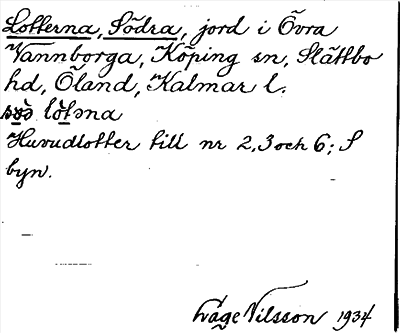 Lotterna, Södra, jord i Övra
Vannborga, Köping sn, Slättbo
hd, Öland, Kalmar l.
lo̊təna
Huvudlotter till nr 2, 3 och 6; S
byn.
Åge Nilsson 1934